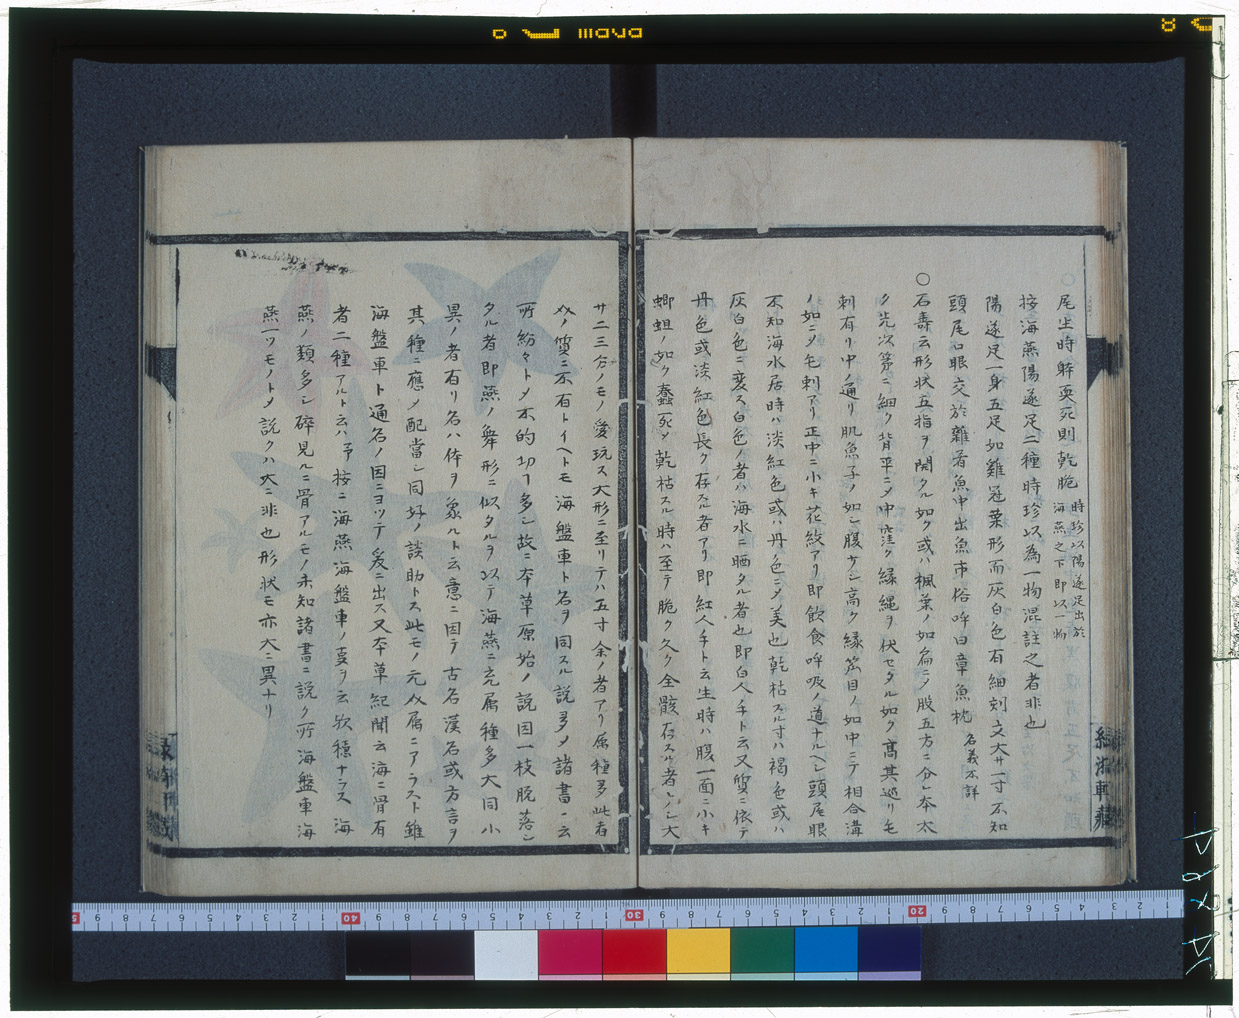 尾生時躰耎死則乾脆 時珍以陽遂足出於
海燕之下即以一物
按海燕陽遂足二種時珍以為一物混註之者非也
陽遂足一身五足如雞冠葉形而灰白色有細刻文大サ一寸不知
頭尾口眼交於雜肴魚中出魚市俗呼曰章魚枕 名義不詳
○石壽云形状五指ヲ開クル如ク或ハ楓葉ノ如扁ニノ股五方ニ分レ本太
ク先次第ニ細ク背平ニメ中窪ク縁縄ヲ伏セタル如ク髙其巡リ毛
刺有リ中ノ通リ肌魚子ノ如シ腹サシ高ク縁筋目ノ如中ニテ相合溝
ノ如ニメ毛刺アリ正中ニ小キ花紋アリ即飲食呼吸ノ道ナルヘシ頭尾眼
不知海水居時ハ淡紅色或ハ丹色ニメ美也乾枯スル寸ハ褐色或ハ
灰白色ニ変ス白色ノ者ハ海水ニ晒タル者也即白人手ト云又質ニ依テ
丹色或淡紅色長ク存スル者アリ即紅人手ト云生時ハ腹一面ニ小キ
蝍蛆ノ如ク蠢死メ乾枯スル時ハ至テ脆ク久ク全骸存スル者少シ大
サ二三分ノモノ愛玩ス大形ニ至リテハ五寸余ノ者アリ属種多此者
メノ質ニ不有トイヘトモ海盤車ト名ヲ同スル説多メ諸書ニ云
所紛々トメ不的切ヿ多シ故ニ本草原始ノ説因一枝脱落シ
タル者即燕ノ舞形ニ似タルヲ以テ海燕ニ充属種多大同小
異ノ者有リ名ハ体ヲ象ルト云意ニ因テ古名漢名或方言ヲ
其種ニ應メ配當シ同好ノ談助トス此モノ元メ属ニアラスト雖
海盤車ト通名ノ因ニヨツテ爰ニ出ス又本草紀聞云海ニ骨有
者二種アルト云ハ予按ニ海燕海盤車ノ㕝ヲ云欤穏ナラス海
燕ノ類多シ碎見ルニ骨アルモノ未知諸書ニ説ク所海盤車海
燕一ツモノトメ説クハ大ニ非也形状モ亦大ニ異ナリ